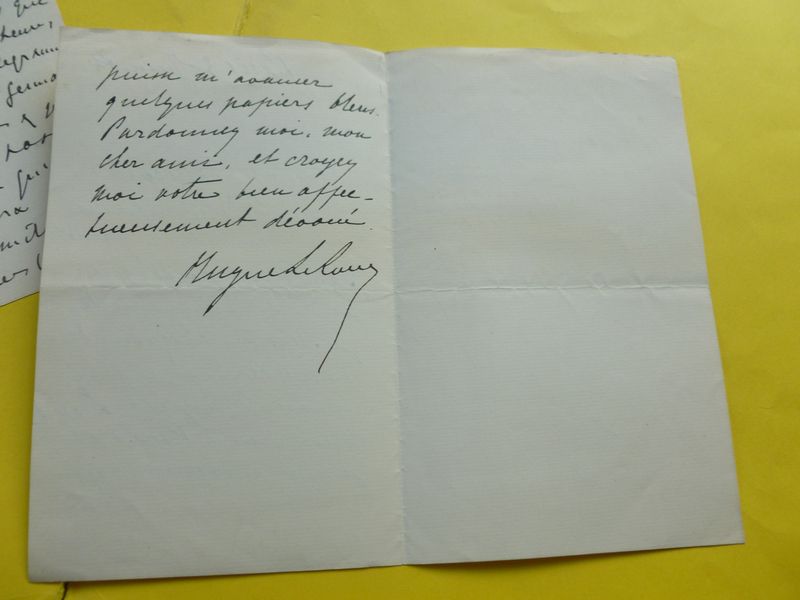 puisse m'avancer
quelques papiers bleus.
Pardonnez moi, mon
cher ami, et croyez
moi votre bien affec-
tueusement dévoué.
Hugues Le Roux
que
heure,